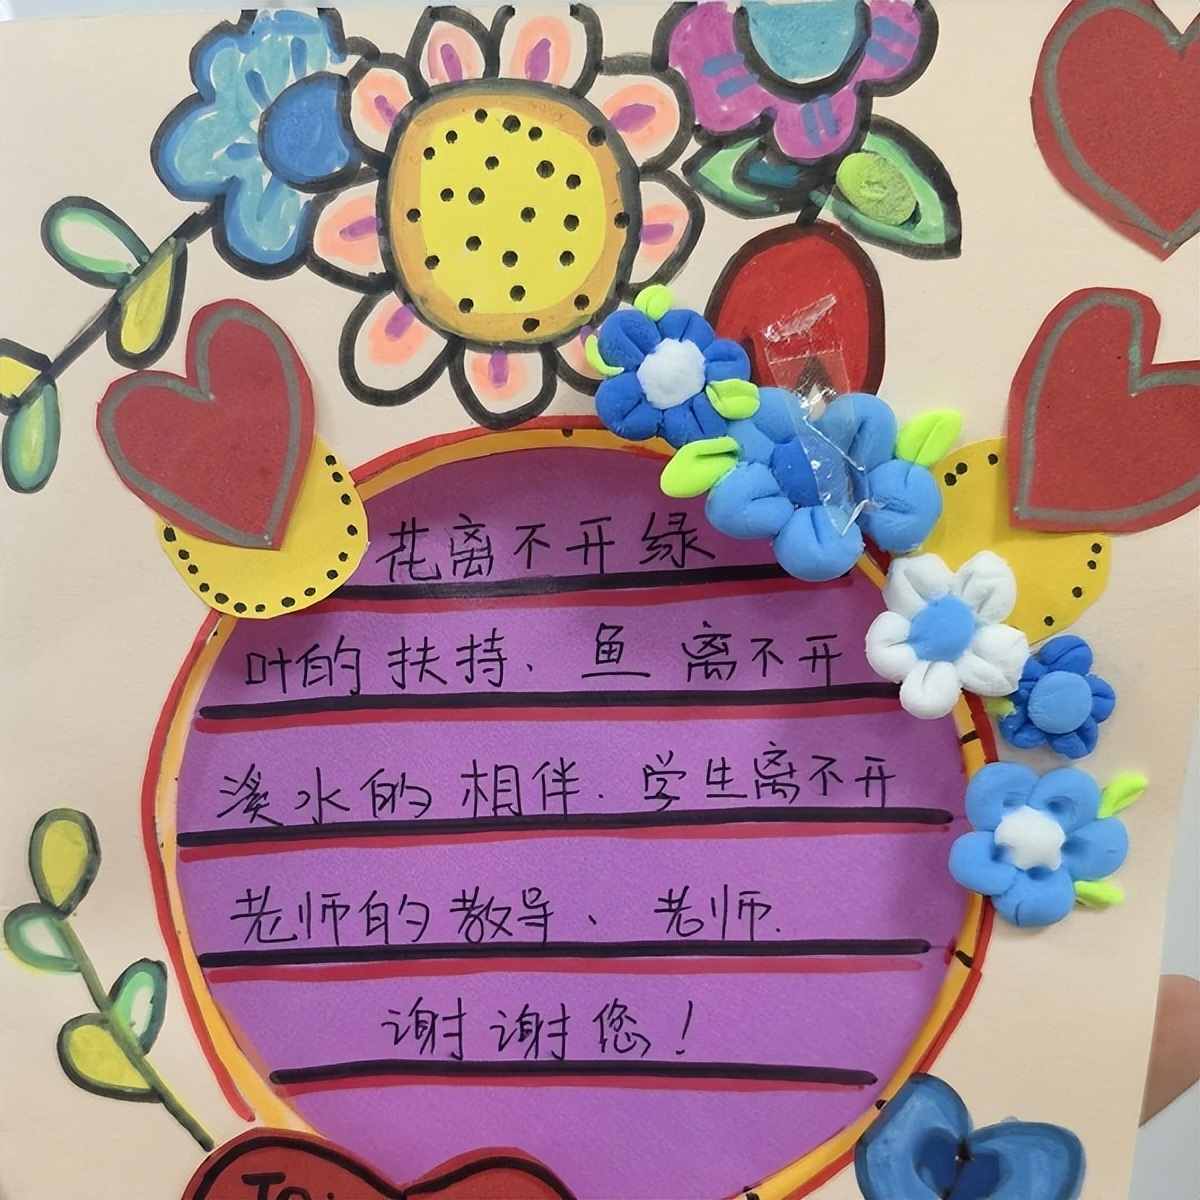 花离不开绿
叶的扶持、鱼离不开
溪水的相伴.学生离不开
老师的教导、老师.
谢谢您！
To: